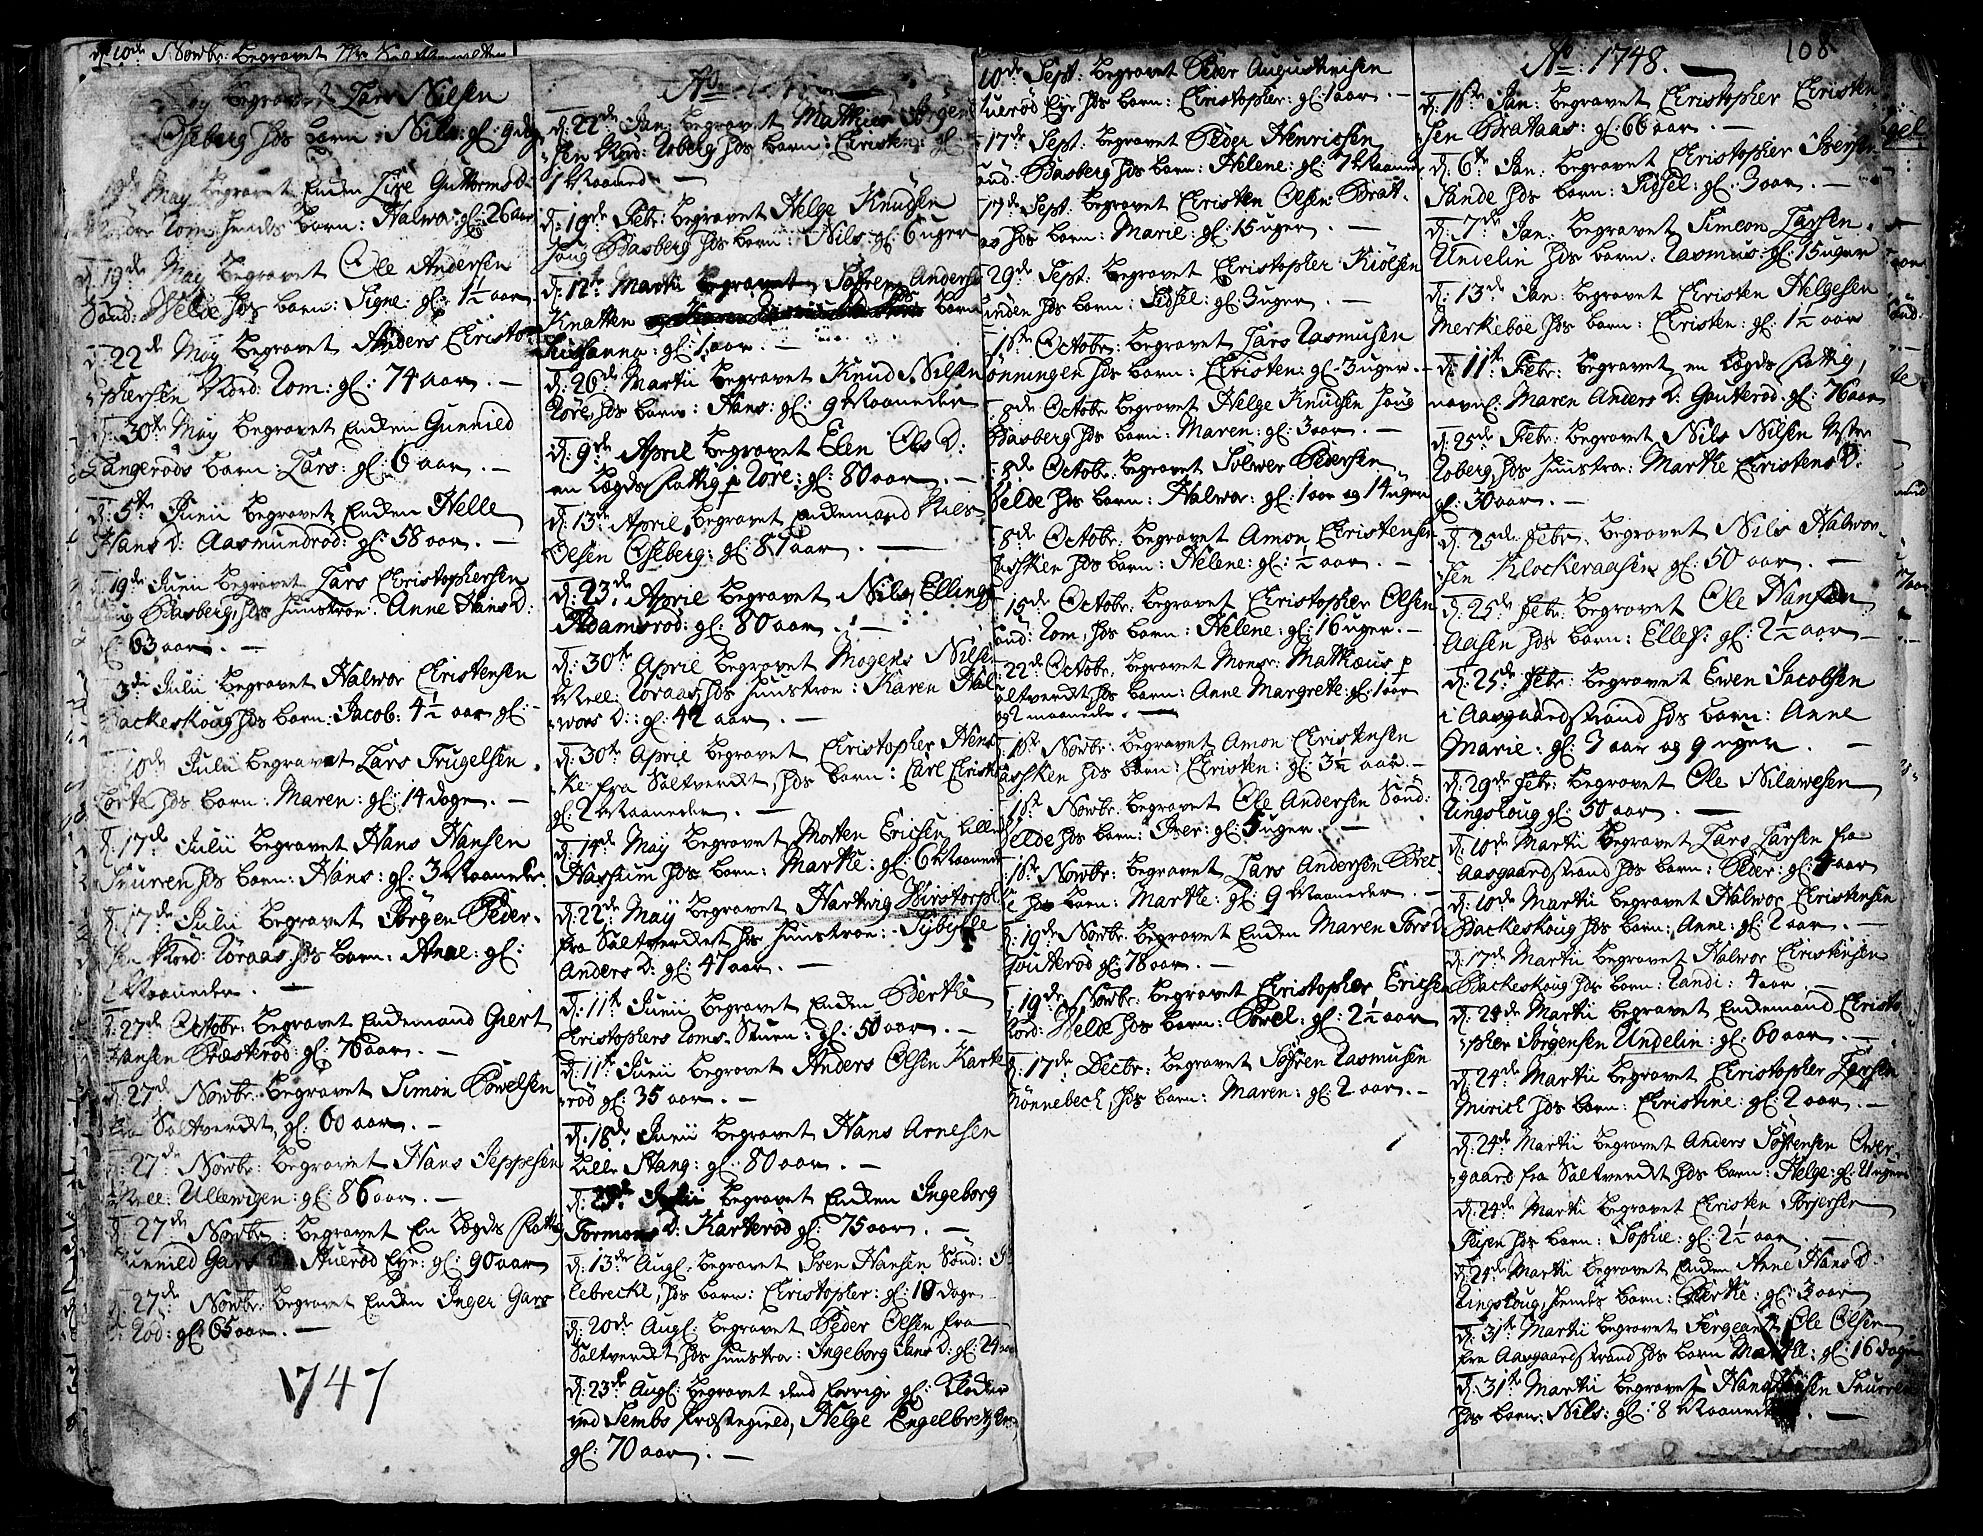 d: 10de Novbr: begravet
May begravet Lars Nilsen
Oseberg hds barn: Nils: gl: 9 dage
May begravet Enken Live Guttormsd:
Rom: hends barn: Halvor: gl: 26 aar
d: 19de May begravet Ole Andersen
Sönd: Velde hds barn: Signe: gl: 1½ aar
d: 22de May begravet Anders Christo-
phersen Nord: Rom: gl: 74 aar. —
d: 30te May begravet Enken Gunnild
Tangerods barn: Lars: gl: 6 aar. —
d: 5te Junii begravet Enken Helle
Hans D: Aasmundrod: gl: 58 aar. —
d: 19de Junii begravet Lars Christophersen
Haug Basberg, hds hustroe: Anne Hans D:
gl: 63 aar. —
3de Julii begravet Halwor Christensen
Backeskoug hds barn: Jacob: 4½ aar gl: —
10de Julii begravet Lars Trugelsen
hds barn: Maren: gl: 14 dage. —
d: 17de Julii begravet Hans Hansen
Snurren hds barn: Hans: gl: 3 Maaneder
d: 17de Julii begravet Jörgen Peder-
sen Nord: Röraas hds barn: Anne: gl:
Maaneder. —
d: 27de Octobr: begravet Enkemand Giert
Hansen Præsterød: gl: 76 aar. —
d: 27de Novbr: begravet Simon Powelsen
fra Saltverdet, gl: 60 aar. —
d: 27de Novbr: begravet Hans Jeppesen
Mell: Ullewigen: gl: 86 aar. —
d: 27de Novbr: begravet En Lægds fattig
Gunnild Stuerød Eye: gl: 90 aar
d: 27de Novbr: begravet Enken Inger Gars
D: Rod: gl: 65 aar. —
1747
Ao
d: 22de Jan: begravet Mathies Jörgen-
sen Nord: Roberg hds barn: Christen: gl:
1 Maaned —
d: 19de Febr: begravet Helge Knudsen
Houg Basberg hds barn: Nils: gl: 6 uger
d: 12te Martii begravet Söfren Anders:
Knatten hds barn
Susanna: gl: 1 aar. —
d: 26de Martii begravet Knud Nilsen
Röre, hds barn: Hans: gl: 9 Maaneder
d: 9de April begravet Elen Ols D:
en Lægds fattig p Röre: gl: 80 aar. —
d: 13de April, begravet Enkemand Niels
Olsen Oseberg: gl: 87 aar. —
d: 23de Aprile begravet Nils Ellings:
Adamsrod: gl: 80 aar. —
d: 30te Aprile begravet Mogens Nilsen
Mell: Röraas, hds hustroe: Karen Hal-
wors D: gl: 42 aar. —
d: 30te Aprile begravet Christopher Hen-
ke fra Saltverdt, hds barn: Carl Christi:
gl: 2 Maaneder. —
d: 14de May begravet Morten Ericsen Lille
Hassum hds barn: Marthe: gl: 6 Maaneder
d: 22de May begravet Hartwig Wirstorph
fra Saltverdet hds hustroe: Sybylle
Anders D: gl: 47 aar. —
d: 11te Junii begravet Enken Berthe
Christophers Roms Stuen: gl: 50 aar. —
d: 11te Junii begravet Anders Olsen Karte
röd gl: 35 aar. —
d: 18de Junii begravet Hans Arnesen
Lille Stang: gl: 80 aar. —
d: begravet Enken Ingeborg
Tormons D: Karteröd gl: 75 aar. —
d: 13de Augl: begravet Iven Hansen Sönd:
lebrecke, hds barn: Christopher: gl: 10 dage
d: 20de Augl: begravet Peder Olsen fra
Saltverdet, hds hustroe: Ingeborg Jans D: gl: 24 aar
d: 23de Augl: begravet dend forrige gl: Klocker
ved Sembs Præstegield, Helge Engelbretsen
gl: 70 aar. —
10de Sept: begravet Peder Augustinsen
Stuerød Eye hds barn: Christopher: gl: 1 aar. —
17de Sept: begravet Peder Henricsen
Basberg hds barn: Helene: gl: 7 Maaneder
17de Sept: begravet Christen Olsen Brat-
aas hds barn: Marie: gl: 15 uger. —
29de Sept: begravet Christopher Kiölsen
Linden hds barn: Sidsel: gl: 3 uger. —
Octobr: begravet Lars Rasmusen
Rönningen hds barn: Christen: gl: 3 uger. —
8de Octobr: begravet Helge Knudsen Houg
Basberg hds barn: Maren: gl: 3 aar. —
8de Octobr: begravet Sölwer Pedersen
Velde hds barn: Halwor: gl: 1 aar og 14 uger
8de Octobr: begravet Amon Christensen
hds barn: Helene: gl: ½ aar. —
15de Octobr: begravet Christopher Olsen
Sönd: Rom, hds barn: Helene: gl: 16 uger. —
22de Octobr: begravet Monsr: Mathæus p
Saltverdt hds barn: Anne Margrete: gl: 1 aar
og 2 maaneder. —
Novbr: begravet Amon Christensen
hds barn: Christen: gl: 3½ aar. —
Novbr: begravet Ole Andersen Sönd:
Velde hds barn: Iver: gl: 5 uger. —
Novbr: begravet Lars Andersen
hds barn: Marthe: gl: 9 Maaneder. —
d: 19de Novbr: begravet Enken Maren Tors D:
Gouterod gl: 78 aar. —
d: 19de Novbr: begravet Christopher Ericsen
Nord: Velde hds barn: Povel: gl: 2½ aar
d: 17de Decbr: begravet Söfren Rasmusen
Rönnebeck, hds barn: Maren: gl: 2 aar. —
108
Ao: 1748. —
d: Jan: begravet Christopher Christen-
sen Brataas: gl: 66 aar. —
d: 6te Jan: begravet Christopher Iversen
Sande hds barn: Sidsel: gl: 3 aar. —
d: 7de Jan: begravet Simeon Larsen
Undelin hds barn: Rasmus: gl: 15 uger
d: 13de Jan: begravet Christen Helgesen
Merkeböe hds barn: Christen: gl: 1½ aar
d: 11te Febr: begravet en Lægds fattig,
navnl: Maren Anders D: Gouterod: gl: 76 aar
d: 25de Febr: begravet Nils Nilsen Vster
Roberg, hds hustroe: Marthe Christens D:
gl: 30 aar. —
d: 25de Febr: begravet Nils Halwor-
sen Klockeraasen gl: 50 aar. —
d: 25de Febr: begravet Ole Hansen
Aasen hds barn: Ellef: gl: 2½ aar —
d: 25de Febr: begravet Ewen Jacobsen
i Aasgaardstrand hds barn: Anne
Marie: gl: 3 aar og 9 uger. —
d: 29de Febr: begravet Ole Nilawesen
Ringskoug gl: 50 aar. —
d: 10de Martii begravet Lars Larsen fra
Aasgaardstrand hds barn: Peder: gl: 4 aar
d: 10de Martii begravet Halwor Christensen
Backeskoug hds barn: Anne: gl: 2 aar. —
d: 17de Martii begravet Halwor Christensen
Backeskoug hds barn: Randi: 4 aar. —
d: 24de Martii begravet Enkemand Christo-
pher Jörgensen Undelin: gl: 60 aar. —
d: 24de Martii begravet Christopher Larsen
Mirich hds barn: Christine: gl: 2 aar. —
d: 24de Martii begravet Anders Söfrensen Over-
gaard fra Saltverdt hds barn: Helge: gl: uger
d: 24de Martii begravet Christen Torjersen
Feisen hds barn: Sophie: gl: 2½ aar. —
d: 24de Martii begravet Enken Anne Hans D:
Ringskoug, hends barn: Berthe: gl: 3 aar
d: 31te Martii begravet Sergeant Ole Olsen
fra Aasgaardstrand hds barn Marthe: gl: 16 dage
d: 31te Martii begravet Hans Hansen Snurren
hds barn: Nils: gl: 8 Maaneder. —